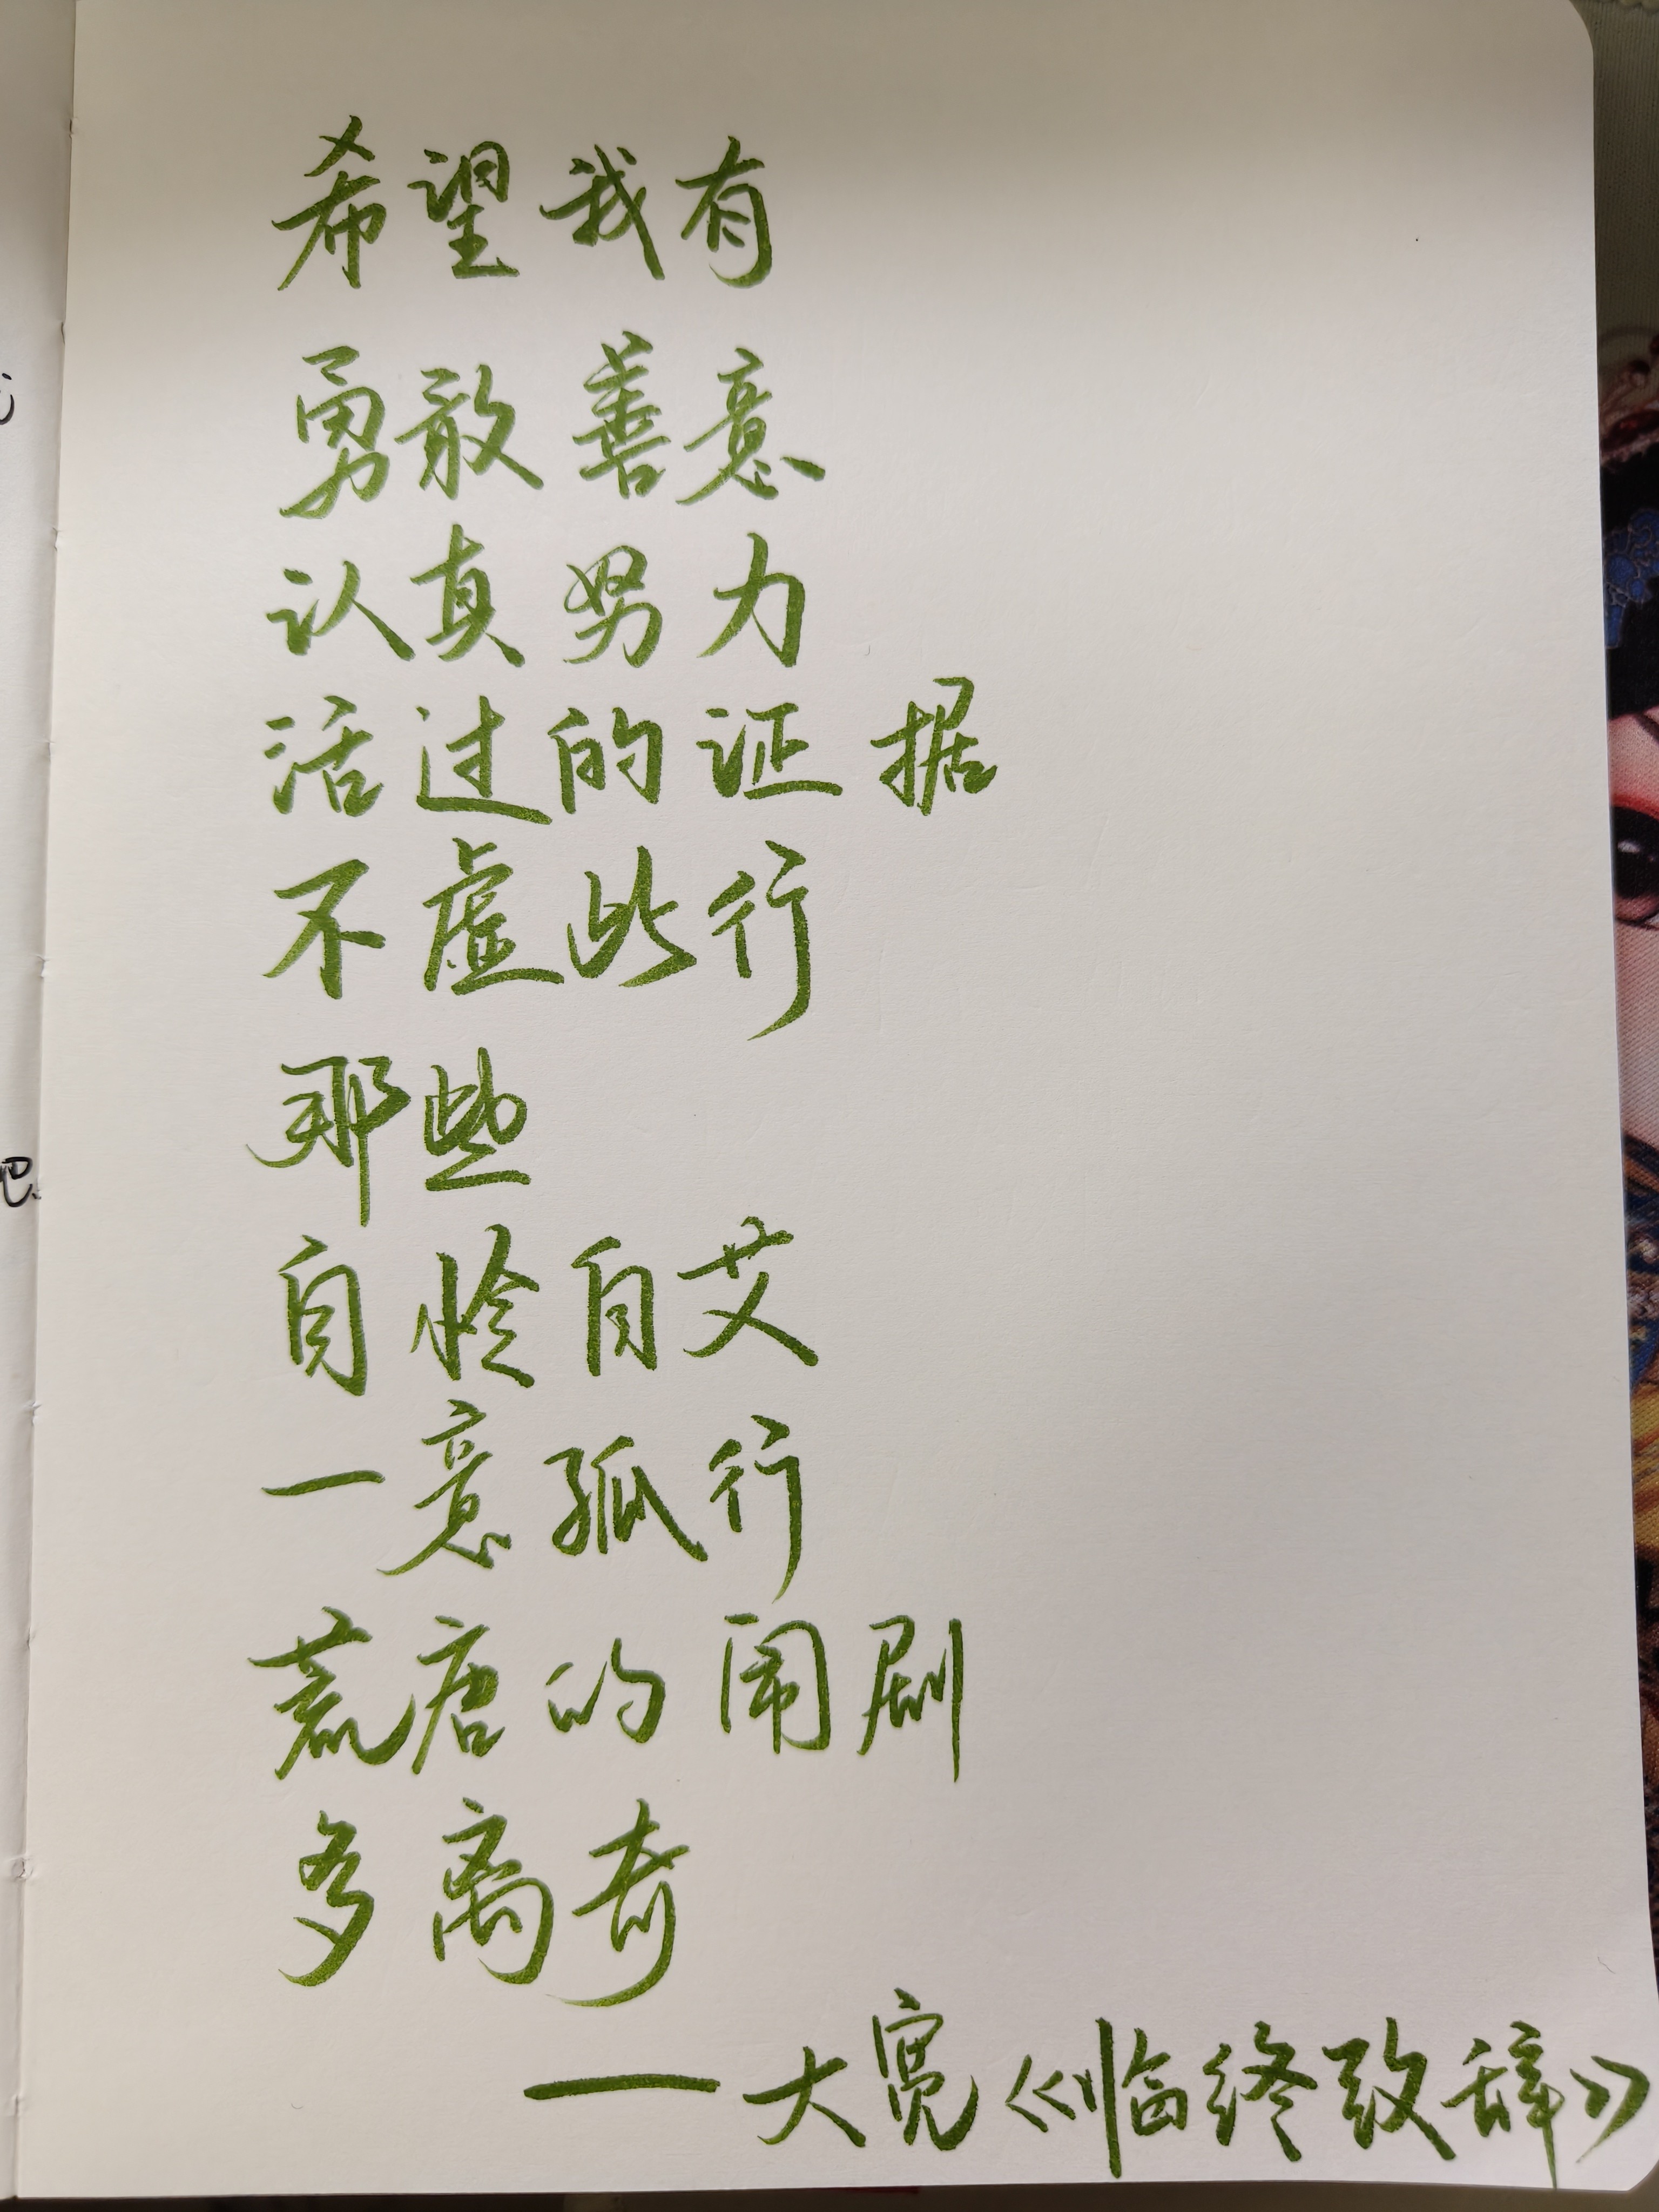 希望我有
勇敢善意
认真努力
活过的证据
不虚此行
那些
自怜自艾
一意孤行
荒唐的闹剧
多离奇
—大宽《临终致辞》
吧